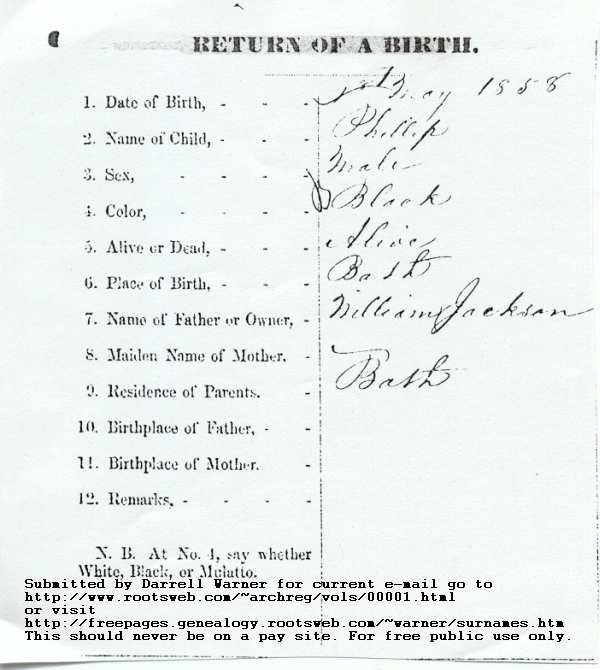 RETURN OF A BIRTH.
1. Date of Birth, - - - 1st May 1858
2. Name of Child, - - - Phillip
3. Sex, - - - - Male
4. Color, - - - - Black
5. Alive or Dead, - - - Alive
6. Place of Birth, - - - Bath
7. Name of Father or Owner, - William Jackson
8. Maiden Name of Mother, -
9. Residence of Parents. - Bath
10. Birthplace of Father, - -
11. Birthplace of Mother. -
12. Remarks, - - - -
N. B. At No. 4, say whether
White, Black, or Mulatto.
Submitted by Darrell Warner for current e-mail go to
http://www.rootsweb.com/~archreg/vols/00001.html
or visit
http://freepages.genealogy.rootsweb.com/~warner/surnames.htm
This should never be on a pay site. For free public use only.